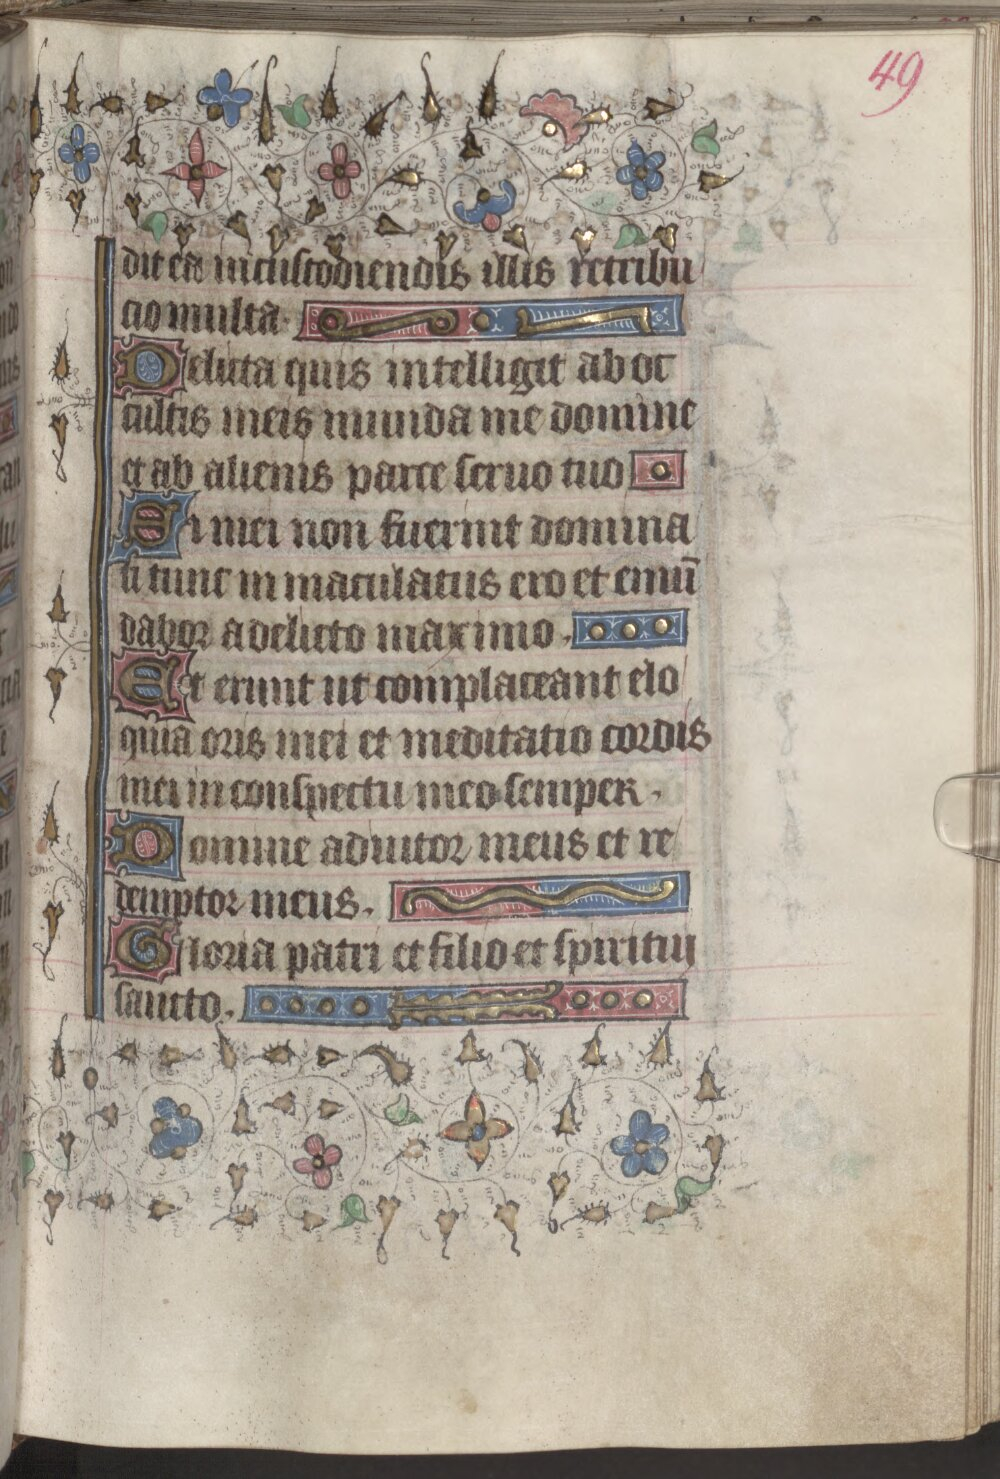 49
dit ea in custodiendis illis retribu
cio multa.
Delicta quis intelligit ab oc
cultis meis munda me domine
et ab alienis parce seruo tuo
Si mei non fuerint domina
ti tunc in maculatus ero et emū
dabor a delicto maximo.
Et erunt ut complaceant elo
quia oris mei et meditatio cordis
mei in conspectu meo semper.
Domine adiutor meus et re
demptor meus.
Gloria patri et filio et spiritui
sancto.